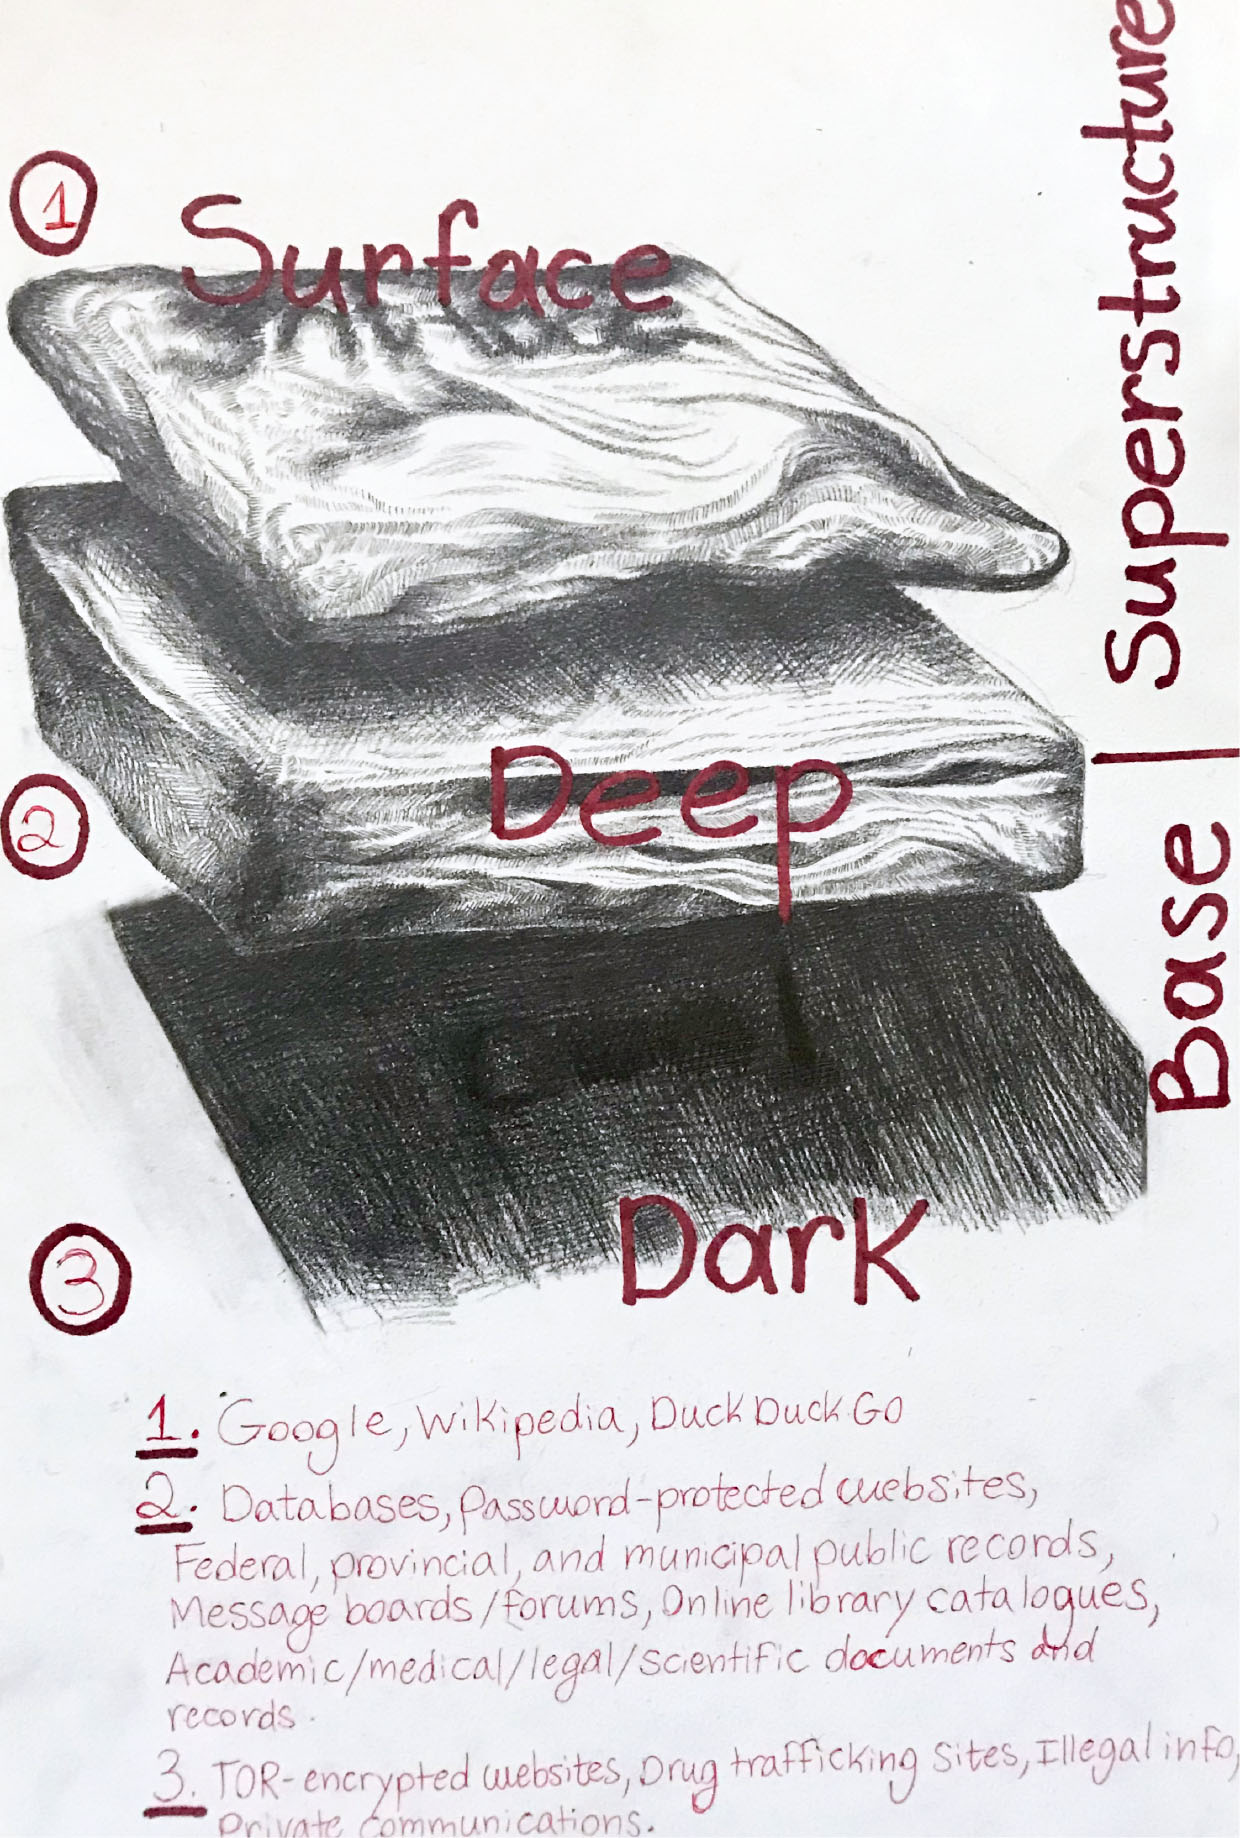 1
Surface
Superstructure
2
Deep
Base |
3
Dark
1. Google, Wikipedia, DuckDuckGo
2. Databases, Password-protected websites,
Federal, provincial, and municipal public records,
Message boards/forums, Online library catalogues,
Academic/medical/legal/scientific documents and
records.
3. TOR-encrypted websites, Drug trafficking Sites, Illegal info,
Private communications.